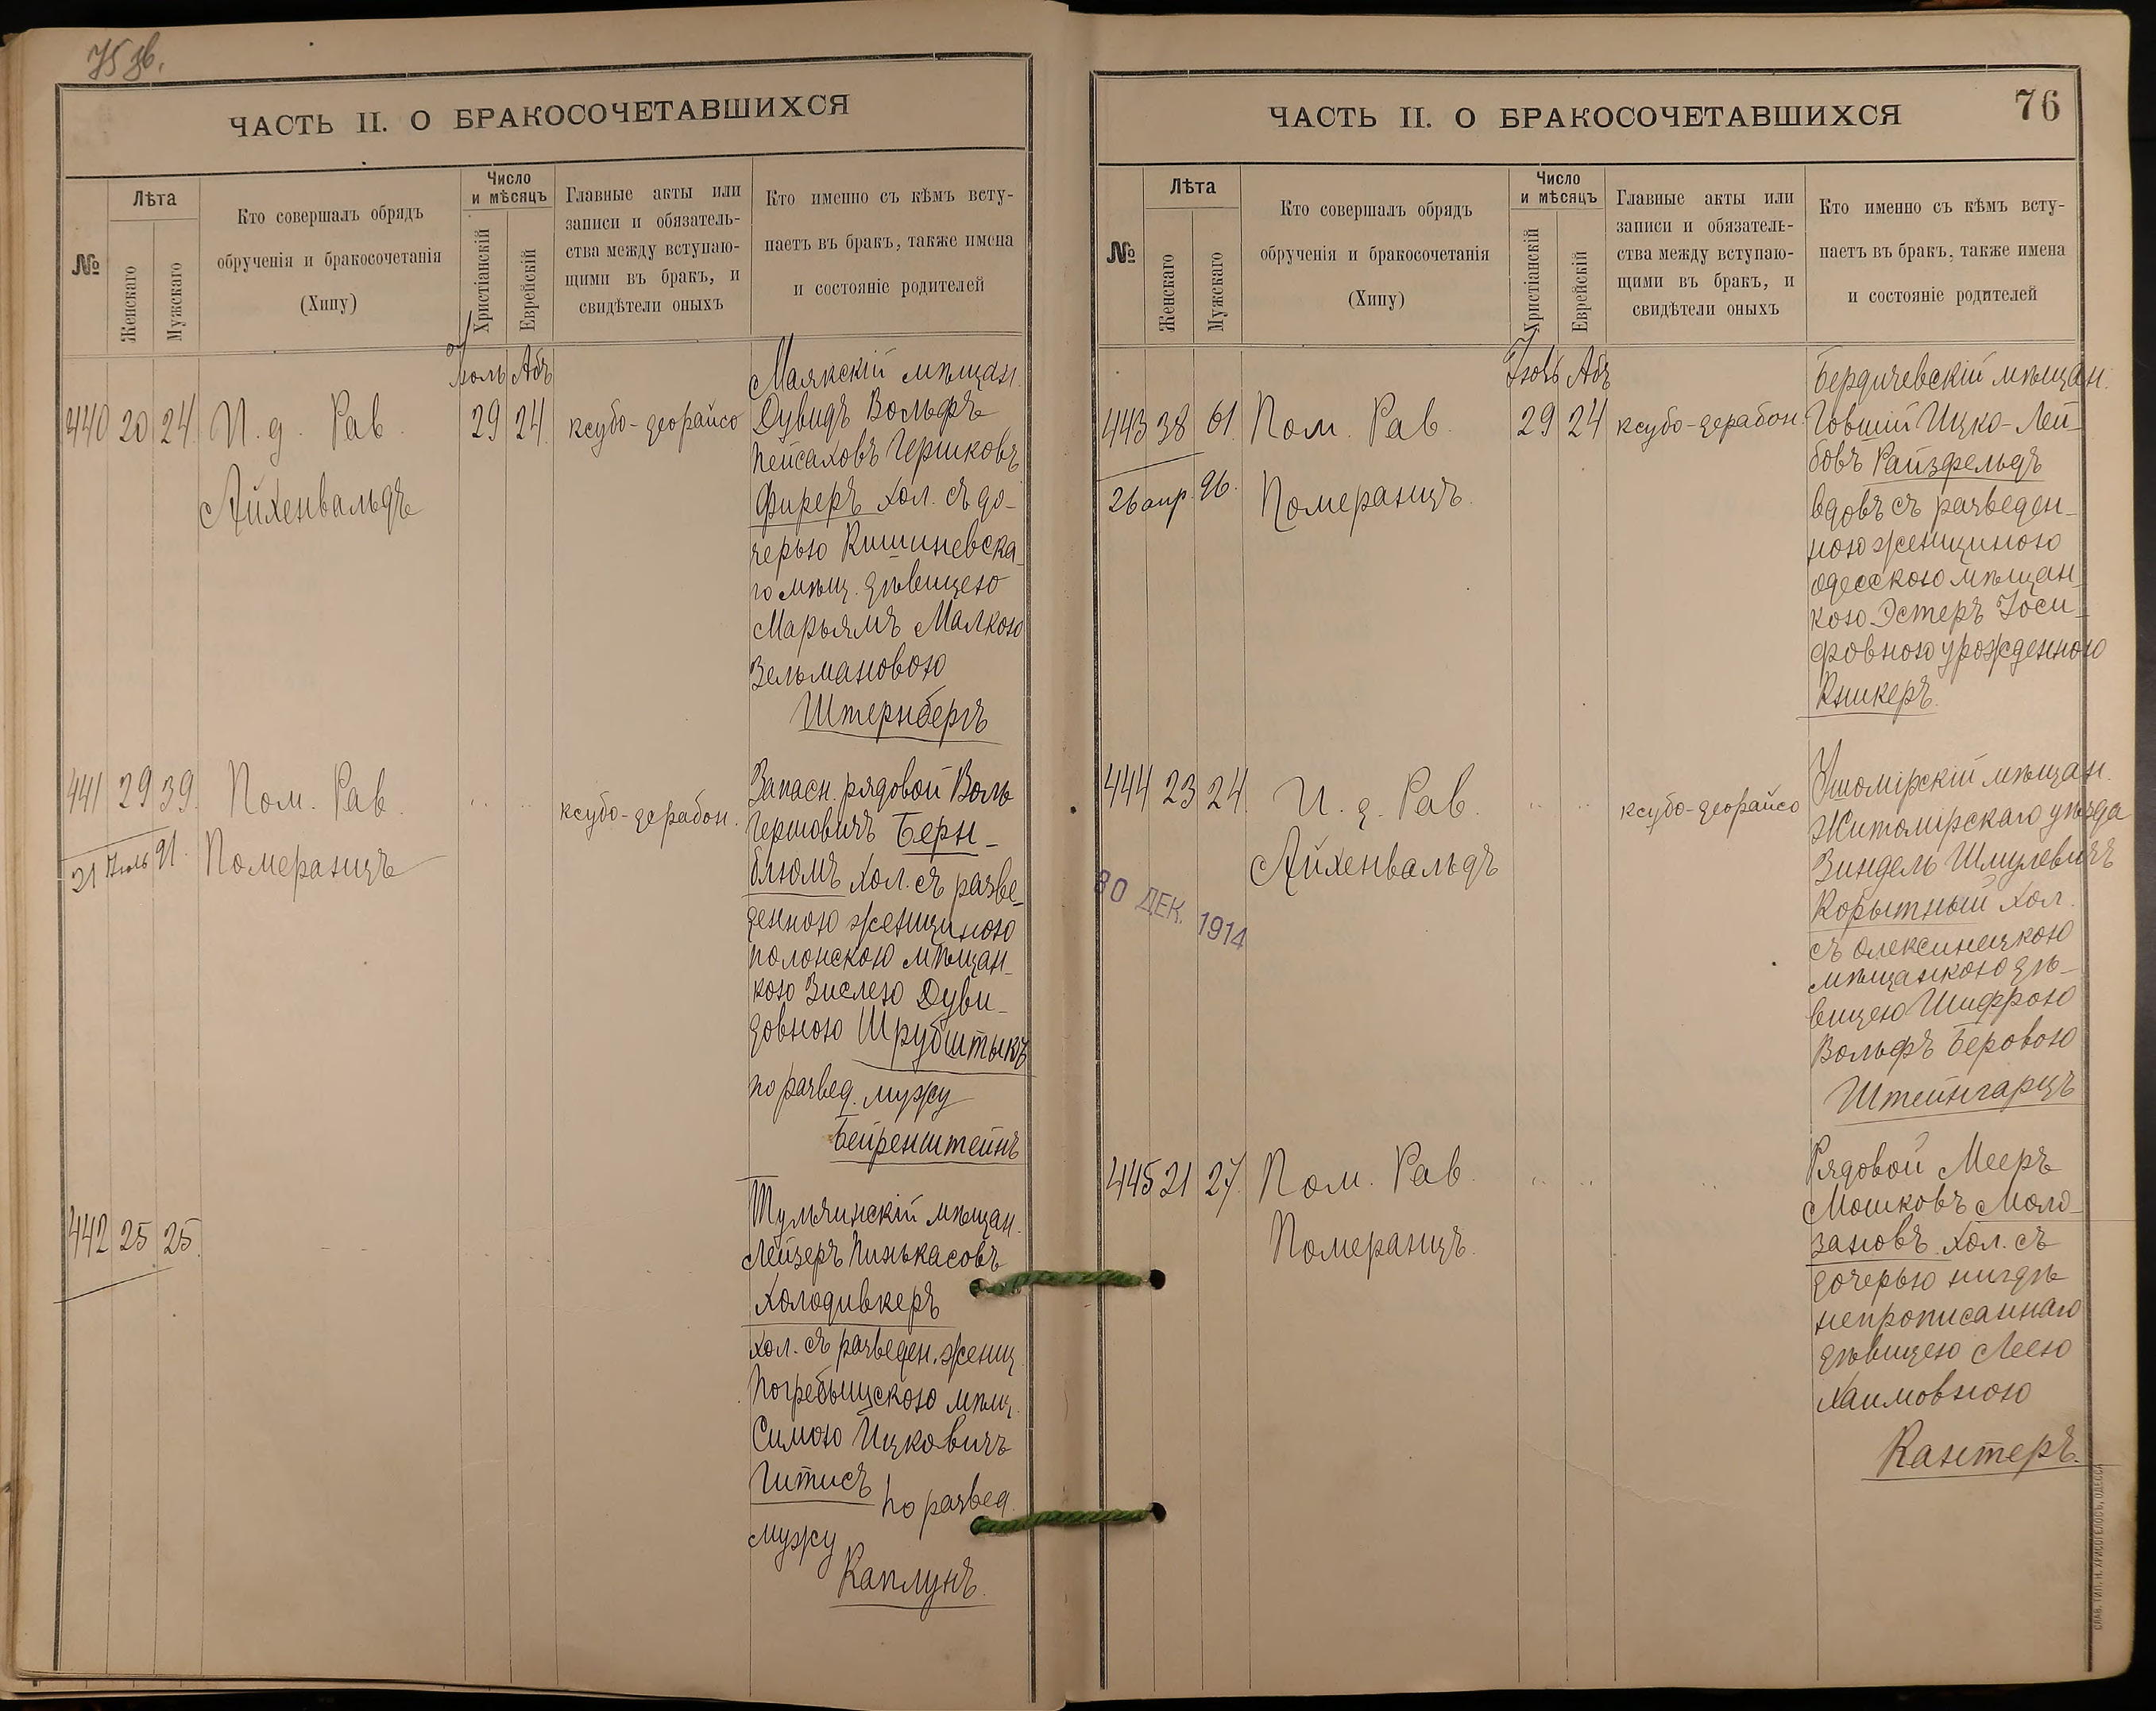 75 зв.
ЧАСТЬ II. О БРАКОСОЧЕТАВШИХСЯ
№
Лѣта
Женскаго
Мужскаго
Кто совершалъ обрядъ
обрученія и бракосочетанія
(Хипу)
Число
и мѣсяцъ
Христіанскій
Еврейскій
Главные акты или
записи и обязатель-
ства между вступаю-
щими въ бракъ, и
свидѣтели оныхъ
Кто именно съ кѣмъ всту-
паетъ въ бракъ, также имена
и состояніе родителей
Іюль Абъ
440 20 24. И. д. Рав.
Айхенвальдъ
29 24
ксубо-деорайсо
Маякскій мѣщан.
Дувидъ Вольфъ
Пейсаховъ Гершковъ
Фиреръ хол. съ до-
черью Кишиневска-
го мѣщ. дѣвицею
Марьямъ Малкою
Зельмановою
Штернбергъ
441 29 39. Пом. Рав.
21 Іюль 91.
Померанцъ
ксубо-дерабон.
Запасн. рядовой Воль
Гершовичъ Берн-
блюмъ хол. съ разве-
денною женщиною
полонскою мѣщан-
кою Зислею Дуви-
довною Шрубштыкъ
по развед. мужу
Бейренштейнъ
442 25 25.
Тульчинскій мѣщан.
Лейзеръ Пинькасовъ
Холодивкеръ
хол. съ разведен. женщ.
Погребыщскою мѣщ.
Симою Ицковичъ
Гитисъ по развед.
мужу
Каплунъ.
76
ЧАСТЬ II. О БРАКОСОЧЕТАВШИХСЯ
№
Лѣта
Женскаго
Мужскаго
Кто совершалъ обрядъ
обрученія и бракосочетанія
(Хипу)
Число
и мѣсяцъ
Христіанскій
Еврейскій
Главные акты или
записи и обязатель-
ства между вступаю-
щими въ бракъ, и
свидѣтели оныхъ
Кто именно съ кѣмъ всту-
паетъ въ бракъ, также имена
и состояніе родителей
Іюль Абъ
443 38 61. Пом. Рав.
26 апр. 96.
Померанцъ.
29 24
ксубо-дерабон.
Бердичевскій мѣщан.
Говшій Ицко-Лей-
бовъ Райзфельдъ
вдовъ съ разведен-
ною женщиною
одесскою мѣщан-
кою Эстеръ Іоси-
фовною урожденною
Кникеръ.
444 23 24. И. д. Рав.
Айхенвальдъ
30 ДЕК. 1914
ксубо-деорайсо
Ушомірскій мѣщан.
Житомірскаго уѣзда
Зиндель Шмулевичъ
Корытный хол.
съ олексинецкою
мѣщанкою дѣ-
вицею Шифрою
Вольфъ Беровою
Штейнгарцъ
445 21 27. Пом. Рав.
Померанцъ.
Рядовой Мееръ
Мошковъ Моло-
зановъ хол. съ
дочерью нигдѣ
непрописаннаго
дѣвицею Леею
Хаимовною
Кантеръ.
СЛАВ. ТИП. Н. ХРИСОГЕЛОСЪ, ОДЕССА